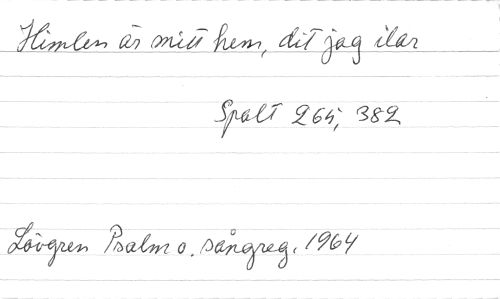 Himlen är mitt hem, dit jag ilar
Spalt 265, 382
Lövgren Psalm o. sångreg. 1964